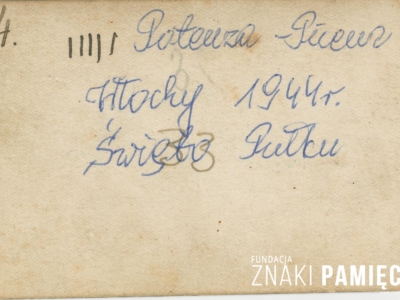 4. Potenza - Picena
Włochy 1944r.
Święto Pułku
33
FUNDACJA
ZNAKI PAMIĘC